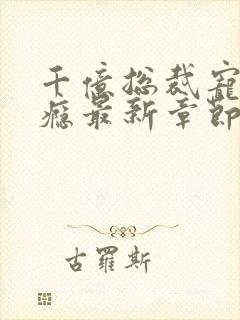 千億总裁寵
癮最新章節
古羅斯